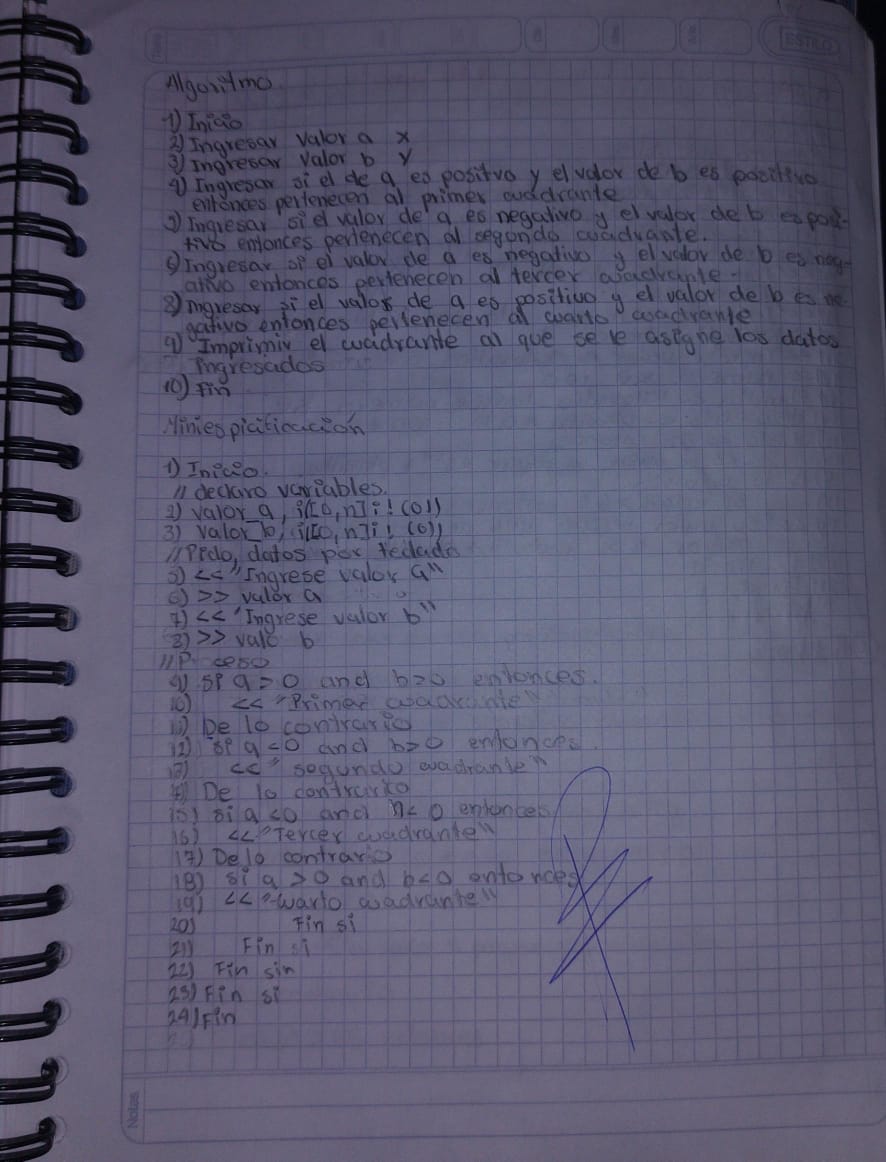 ESTILO
Algoritmo
1) Inicio
2) Ingresar valor a x
3) Ingresar valor b y
4) Ingresar si el de a es positvo y el valor de b es positivo
entonces pertenecen al primer cuadrante
5) Ingresar si el valor de a es negativo y el valor de b es posi-
tivo entonces pertenecen al segundo cuadrante.
6) Ingresar si el valor de a es negativo y el valor de b es neg-
ativo entonces pertenecen al tercer cuadrante.
8) Ingresar si el valor de a es positivo y el valor de b es ne-
gativo entonces pertenecen al cuarto cuadrante
9) Imprimir el cuadrante al que se le asigne los datos
ingresados
10) Fin
Miniespicificación
1) Inicio.
// declaro variables.
2) valor_a, i([0,n]i!(0))
3) valor_b, i([0,n]i!(0))
// Pido, datos por teclado
5) << "Ingrese valor a"
6) >> valor a
7) << "Ingrese valor b"
8) >> valo b
// P ceso
9) si a>0 and b>0 entonces.
10) << "Primer cuadrante"
11) De lo contrario
12) si a<0 and b>0 entonces.
13) << "segundo cuadrante"
14) De lo contrario
15) si a <0 and b< 0 entonces
16) << "Tercer cuadrante"
17) De lo contrario
18) si a >0 and b<0 entonces
19) << "cuarto cuadrante"
20) Fin si
21) Fin si
22) Fin sin
23) Fin si
24) Fin
Notas